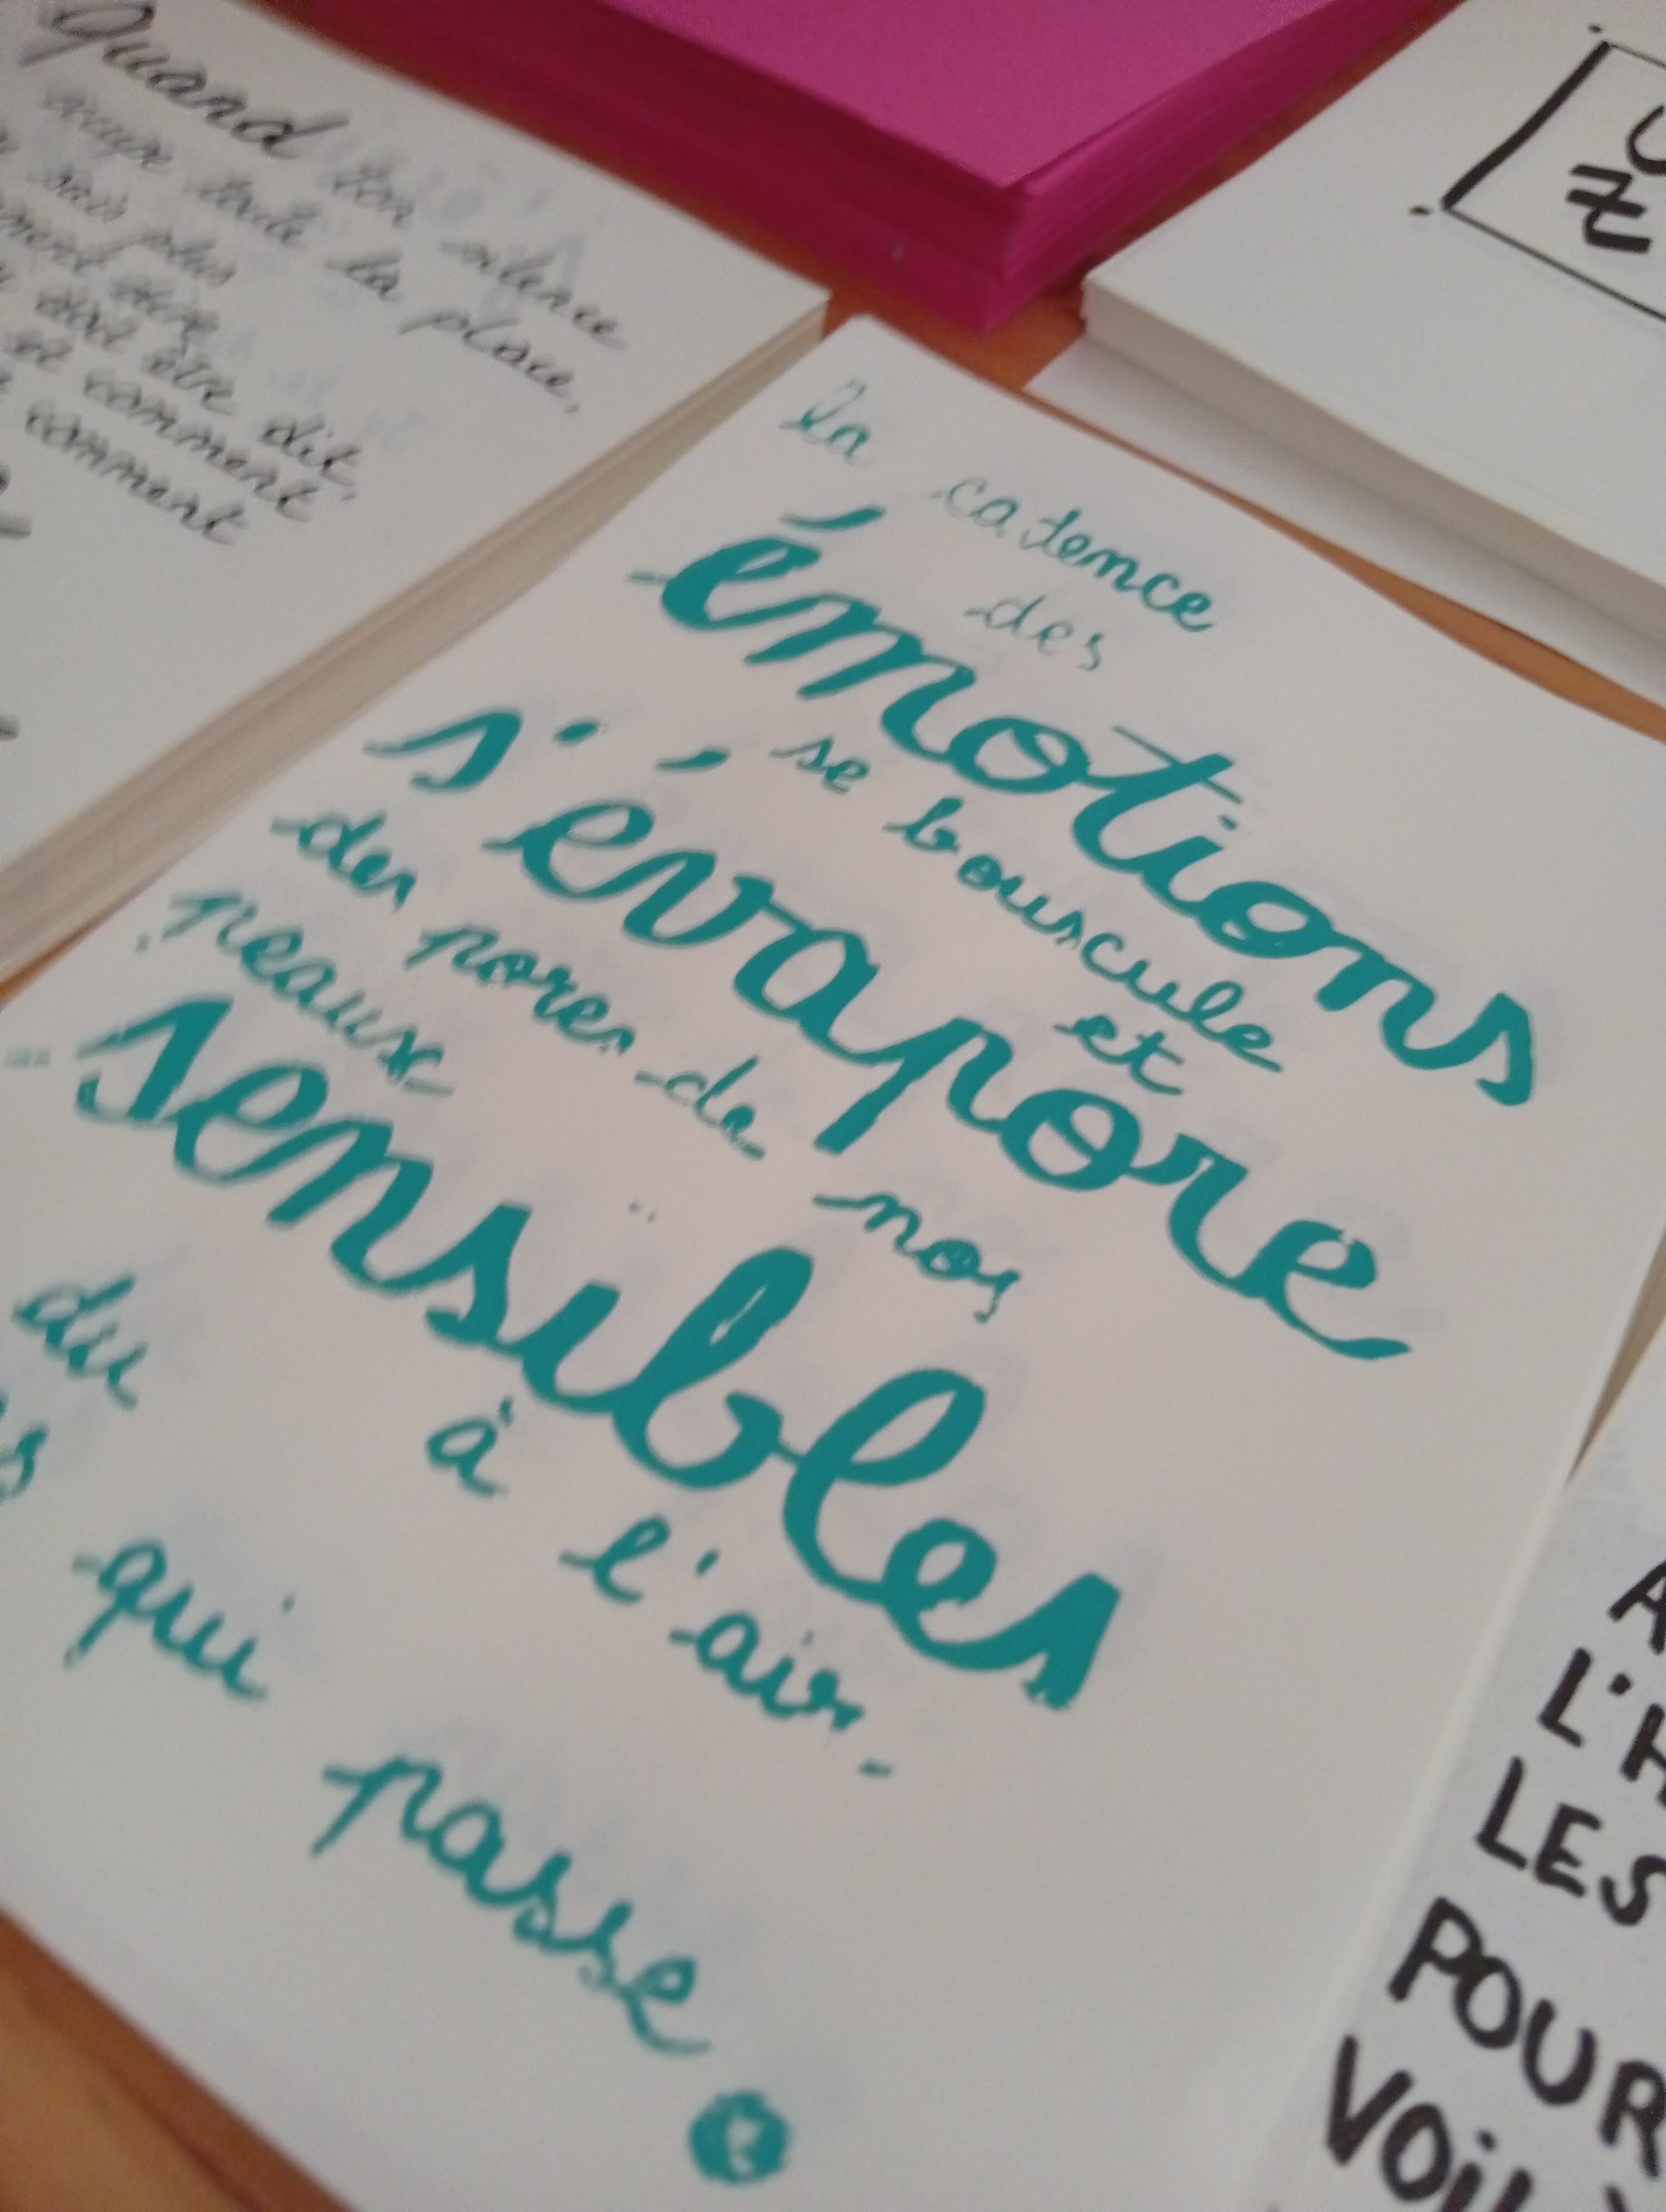 Quand ton silence
occupe toute la place,
sais plus
dire
doit être dit,
comment
comment
la
catence
des
émotions
se bouscule
et
s'évapore
des pores de nos
peaux
sensibles
à l'air
du
qui passe
L'H
LES
POUR
VOILÀ